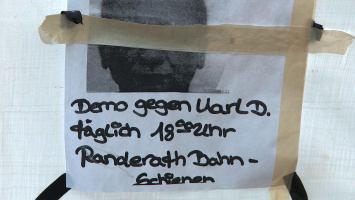 Demo gegen Karl D.
täglich 18 00 Uhr
Randerath Bahn-
Schienen